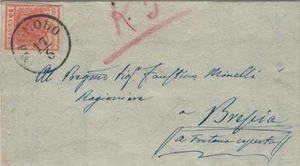 R S
17/5
Al Pregmo Sigr Faustino Minelli
Ragioniere
a Brescia
a Fontana coperta